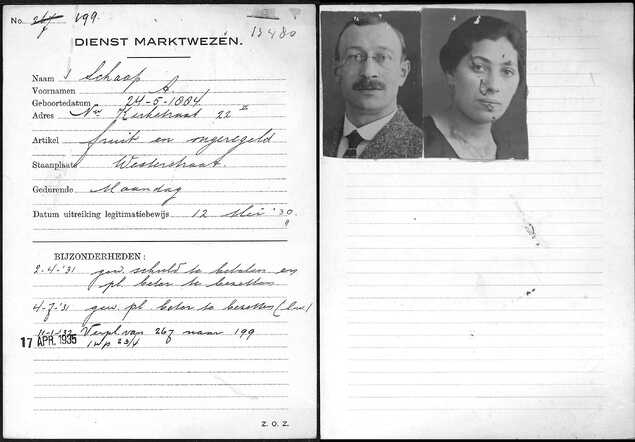 No. 267 199.
13480
DIENST MARKTWEZEN.
Naam Schaap
Voornamen A.
Geboortedatum 24-5-1884
Adres Nw Kerkstraat 22 II
Artikel fruit en ongeregeld
Staanplaats Westerstraat
Gedurende Maandag
Datum uitreiking legitimatiebewijs 12 Mei '30.
BIJZONDERHEDEN:
2-4-'31 gew. schuld te betalen en
pl. beter te bezetten
4-7-'31 gew. pl. beter te bezetten
11-1-'32 Verpl. van 267 naar 199
17 APR. 1935
Z. O. Z.